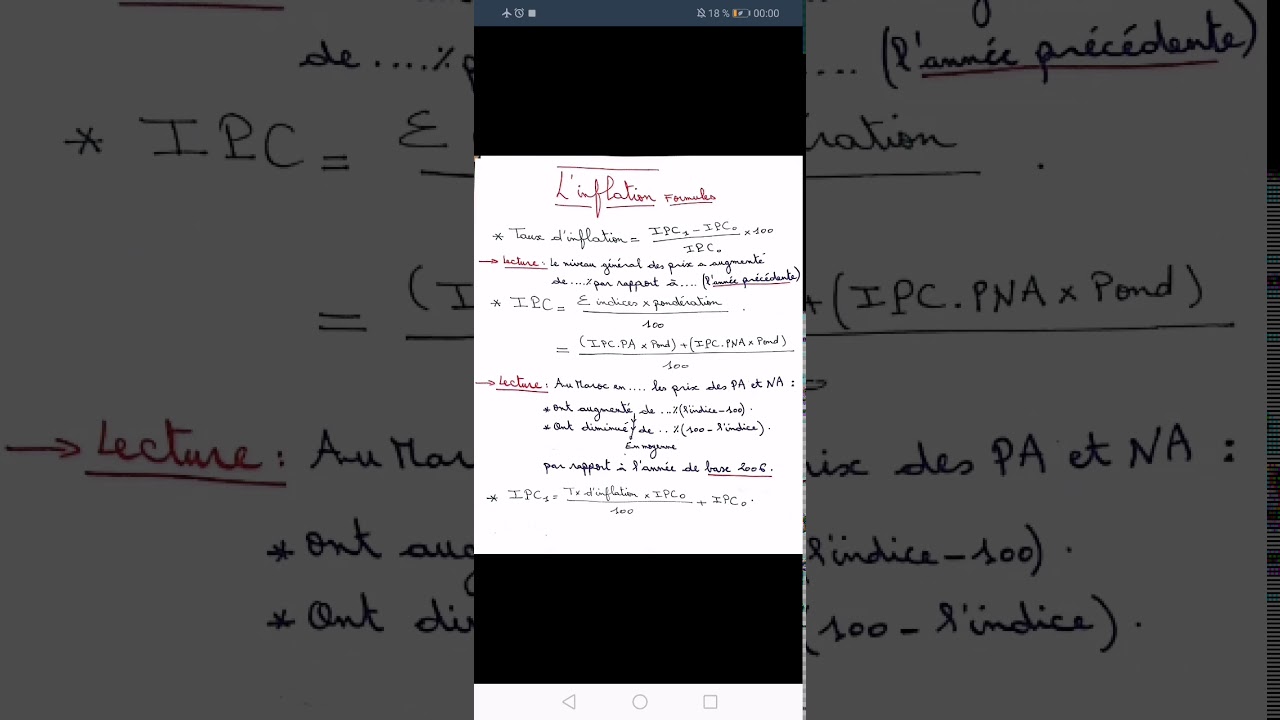 18 % 00:00
L'inflation Formules
* Taux d'inflation = IPC₁ - IPC₀ / IPC₀ × 100
→ Lecture : Le niveau général des prix a augmenté
de ....% par rapport à .... (l'année précédente)
* IPC = Σ indices × pondération / 100 .
= (IPC.PA × Pond) + (IPC.PNA × Pond) / 100
→ Lecture : Au Maroc en .... les prix des PA et NA :
* ont augmenté de ...% (l'indice - 100) .
* Ont diminué de .. % (100 - l'indice) .
En moyenne
par rapport à l'année de base 2006.
* IPC₁ = Tx d'inflation × IPC₀ / 100 + IPC₀ .